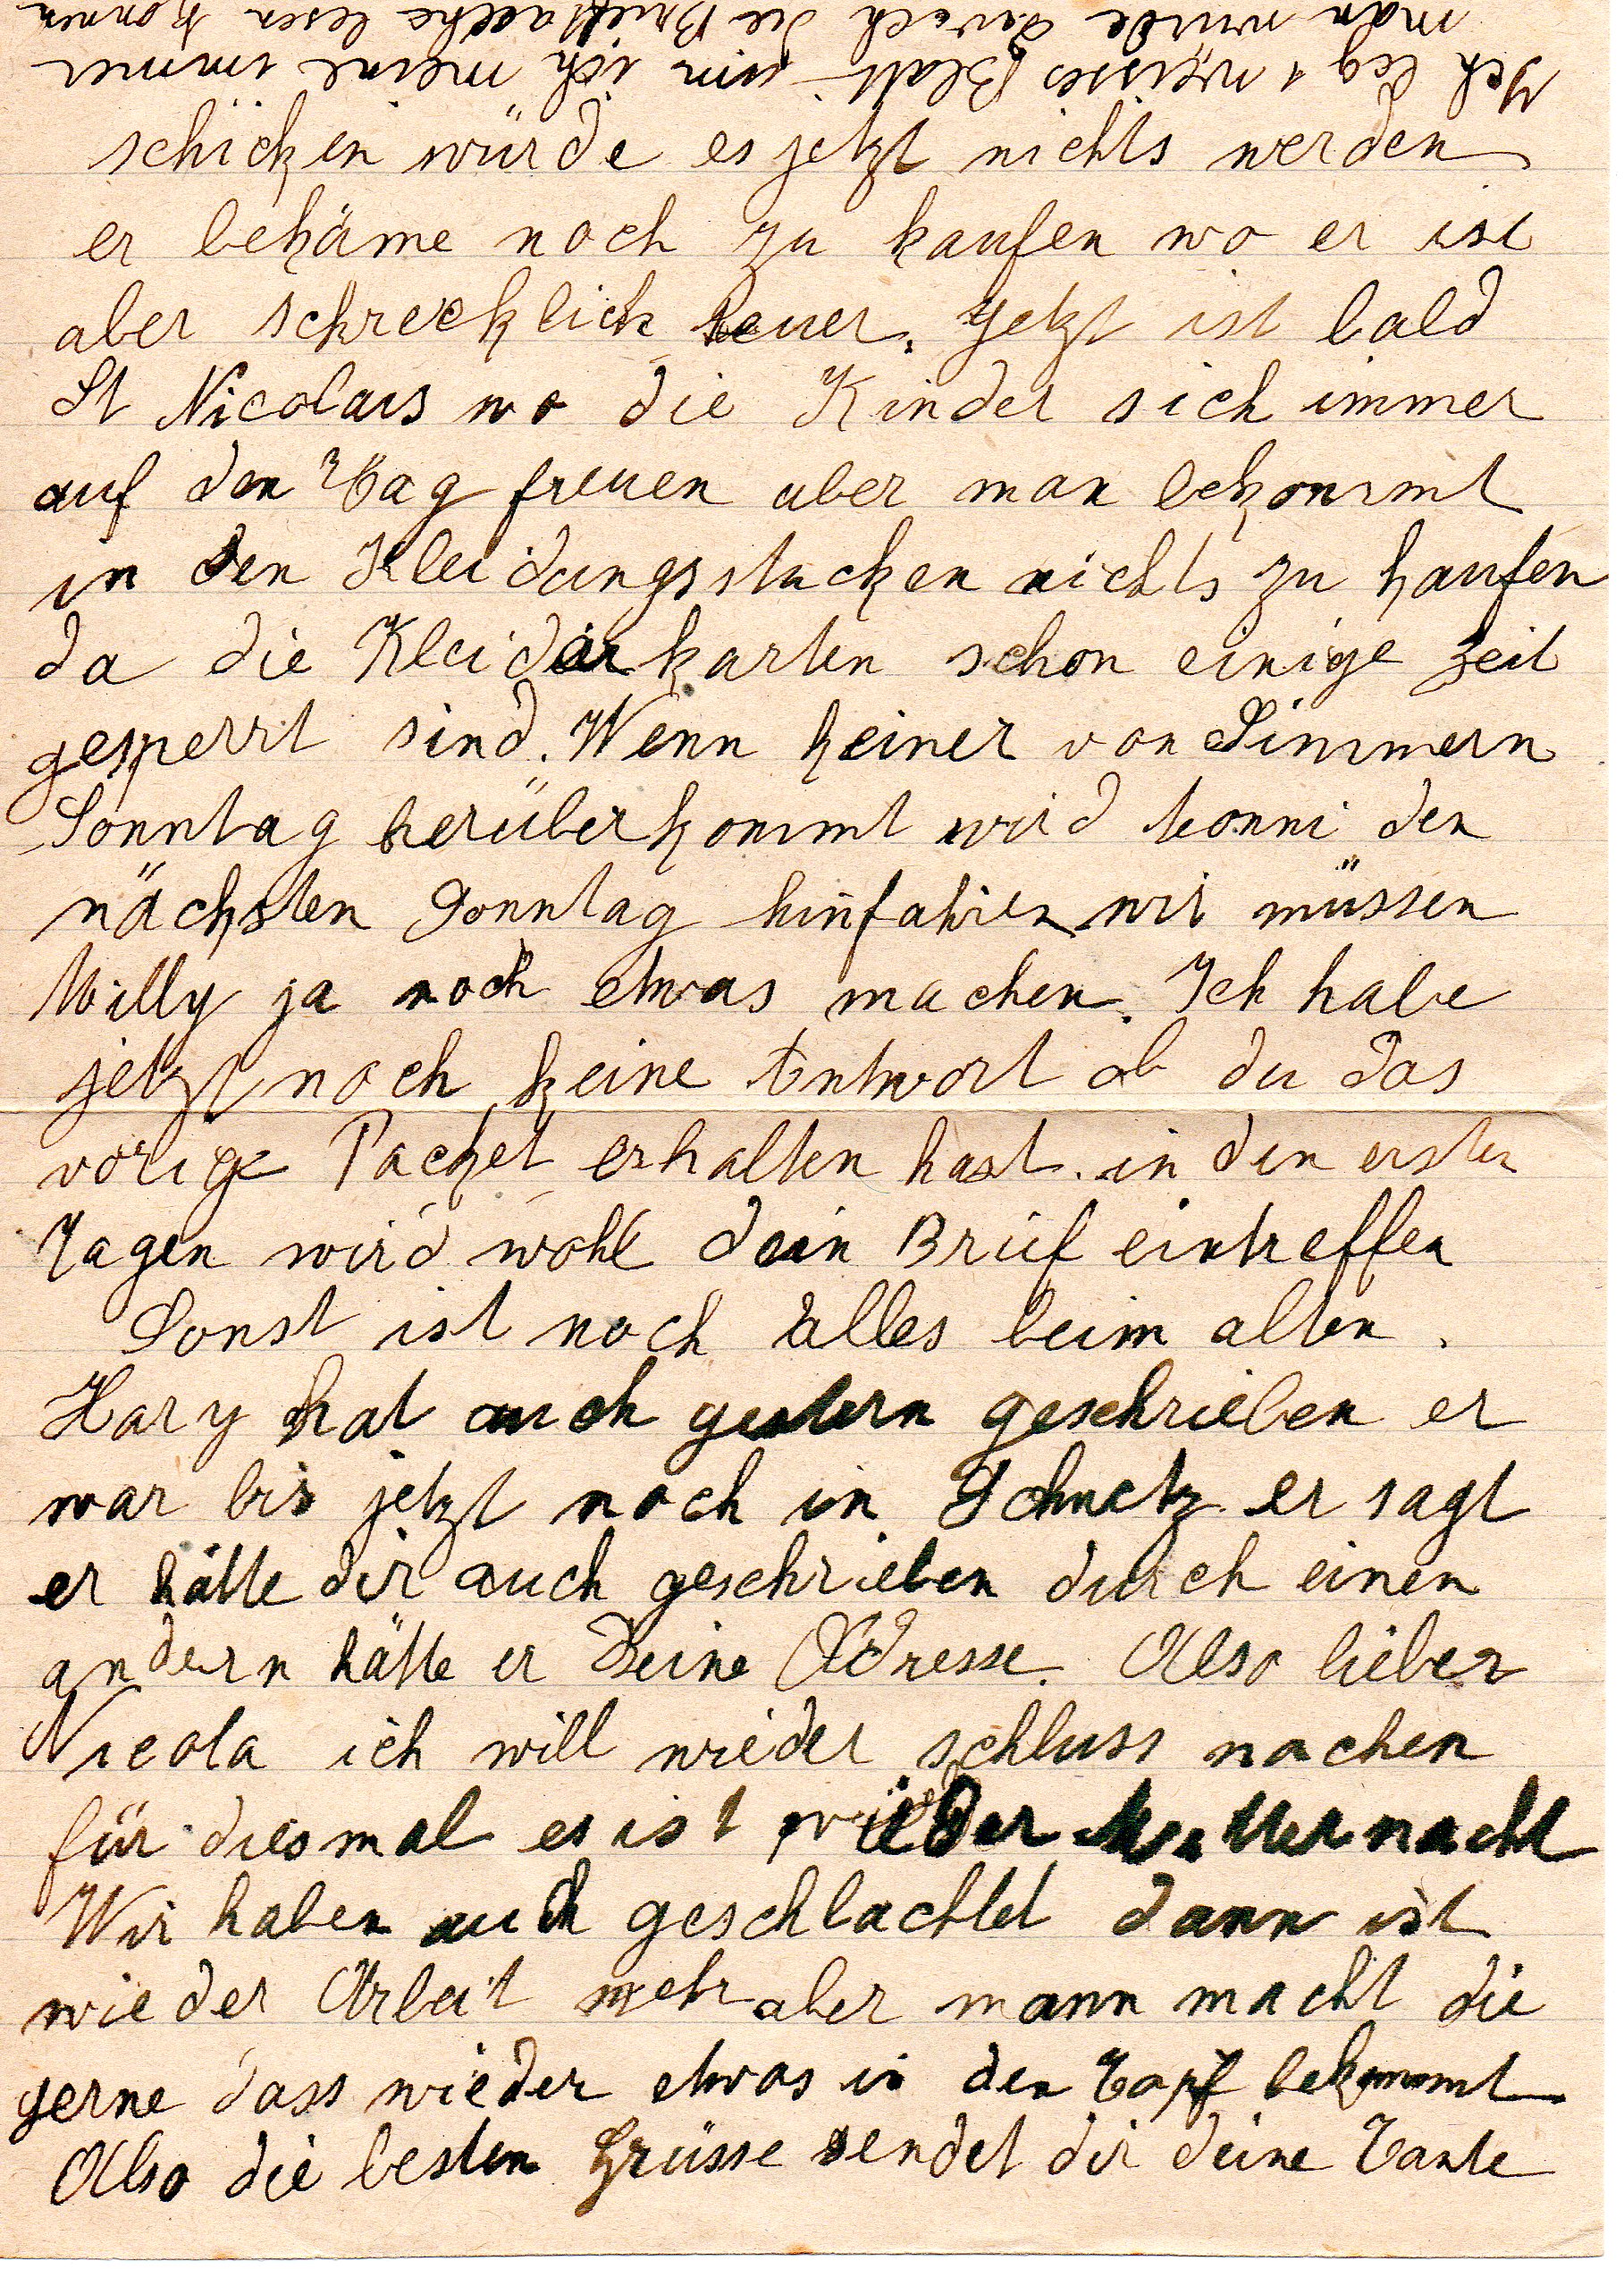 Ich leg 1 weisses Blatt um ich meine immer
man wurde durch die Brieftasche lesen konnen
schicken würde es jetzt nichts werden
er bekäme noch zu kaufen wo er ist
aber schrecklich teuer. Jetzt ist bald
St Nicolaus wo die Kinder sich immer
auf den Tag freuen aber man bekommt
in den Kleidungsstucken nichts zu kaufen
da die Kleiderkarten schon einige Zeit
gesperrt sind. Wenn keiner von Simmern
Sonntag herüberkommt wird Konni den
nächsten Sonntag hinfahren wir müssen
Willy ja noch etwas machen. Ich habe
jetzt noch keine Antwort ob du das
vorige Packet erhalten hast. in den ersten
Tagen wird wohl dein Brief eintreffen
Sonst ist noch alles beim alten.
Hary hat auch gestern geschrieben er
war bis jetzt noch in er sagt
er hätte dir auch geschrieben durch einen
andern hätte er Deine Adresse. Also lieber
Nicola ich will wieder schluss machen
für diesmal es ist wieder
Wir haben auch geschlachtet dann ist
wieder Arbeit mehr aber mann macht die
gerne dass wieder etwas in den Topf bekommt
Also die besten Grüsse sendet dir deine Tante